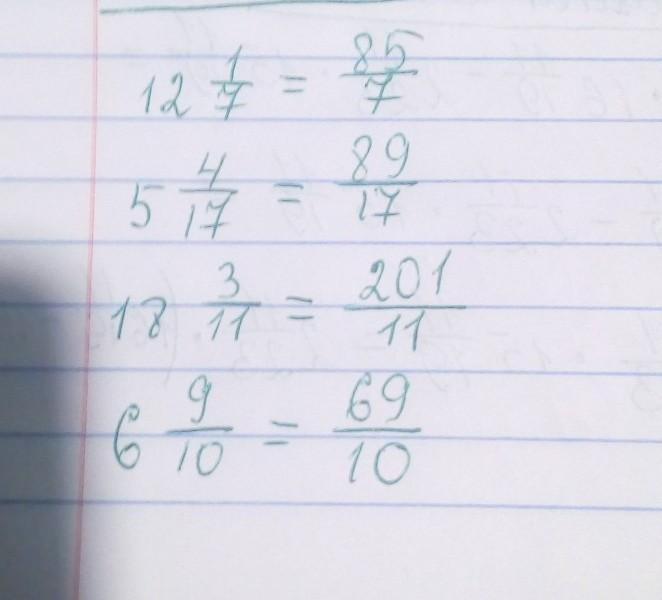 12 1/7 = 85/7
5 4/17 = 89/17
18 3/11 = 201/11
6 9/10 = 69/10